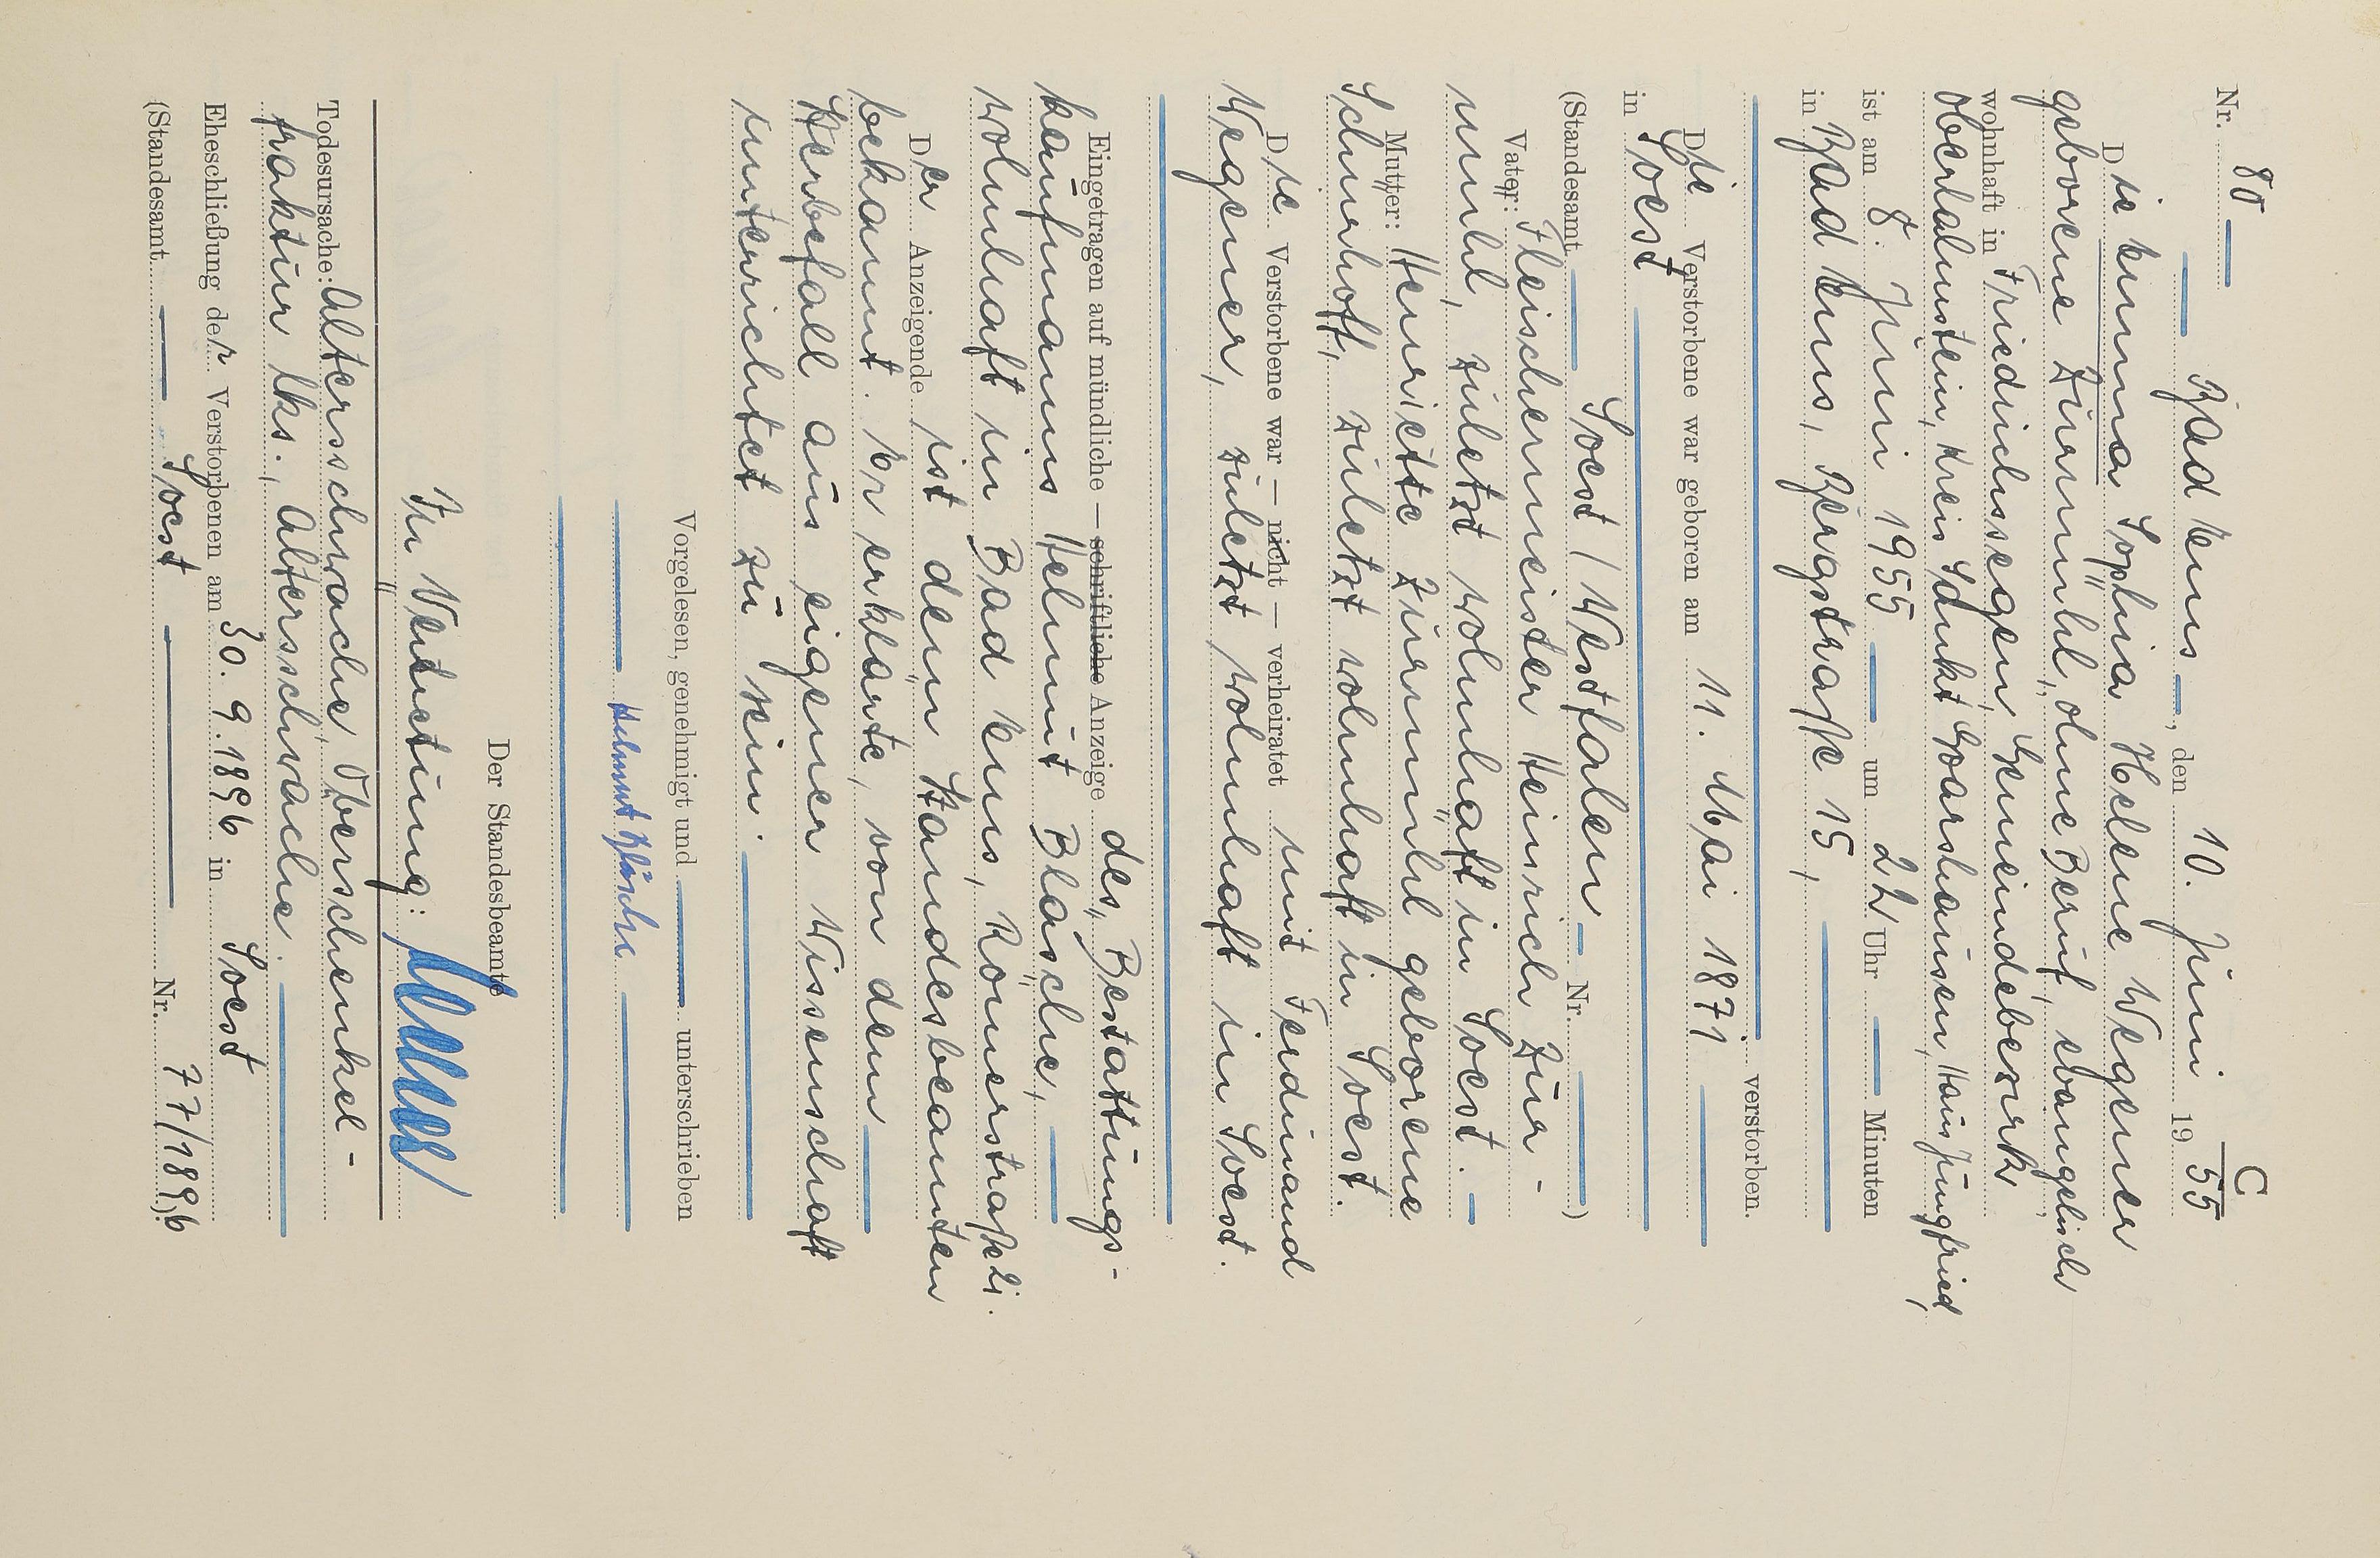 C
Nr. 80
Bad Ems, den 10. Juni 1955
Die Emma Sophia Helene Wegener
geborene Zurmühl, ohne Beruf, evangelisch
wohnhaft in Friedrichssegen, Gemeindebezirk
Oberlahnstein, Kreis Sankt Goarshausen, Haus Jungfried,
ist am 8. Juni 1955 um 22 Uhr Minuten
in Bad Ems, Bergstraße 15,
verstorben.
Die Verstorbene war geboren am 11. Mai 1871
in Soest
(Standesamt Soest / Westfalen Nr. )
Vater: Fleischermeister Heinrich Zur-
mühl, zuletzt wohnhaft in Soest.
Mutter: Henriette Zurmühl geborene
Schürhoff, zuletzt wohnhaft in Soest.
Die Verstorbene war — nicht — verheiratet mit Ferdinand
Wegener, zuletzt wohnhaft in Soest.
Eingetragen auf mündliche — schriftliche Anzeige des Bestattungs-
kaufmanns Helmut Bläsche,
wohnhaft in Bad Ems, Römerstraße 21.
Der Anzeigende ist dem Standesbeamten
bekannt. Er erklärte, von dem
Sterbefall aus eigener Wissenschaft
unterrichtet zu sein.
Vorgelesen, genehmigt und unterschrieben
Helmut Bläsche
Der Standesbeamte
In Vertretung:
Todesursache: Altersschwäche, Oberschenkel-
fraktur lks., Altersschwäche.
Eheschließung der Verstorbenen am 30. 9. 1896 in Soest
(Standesamt Soest Nr. 77/1896).